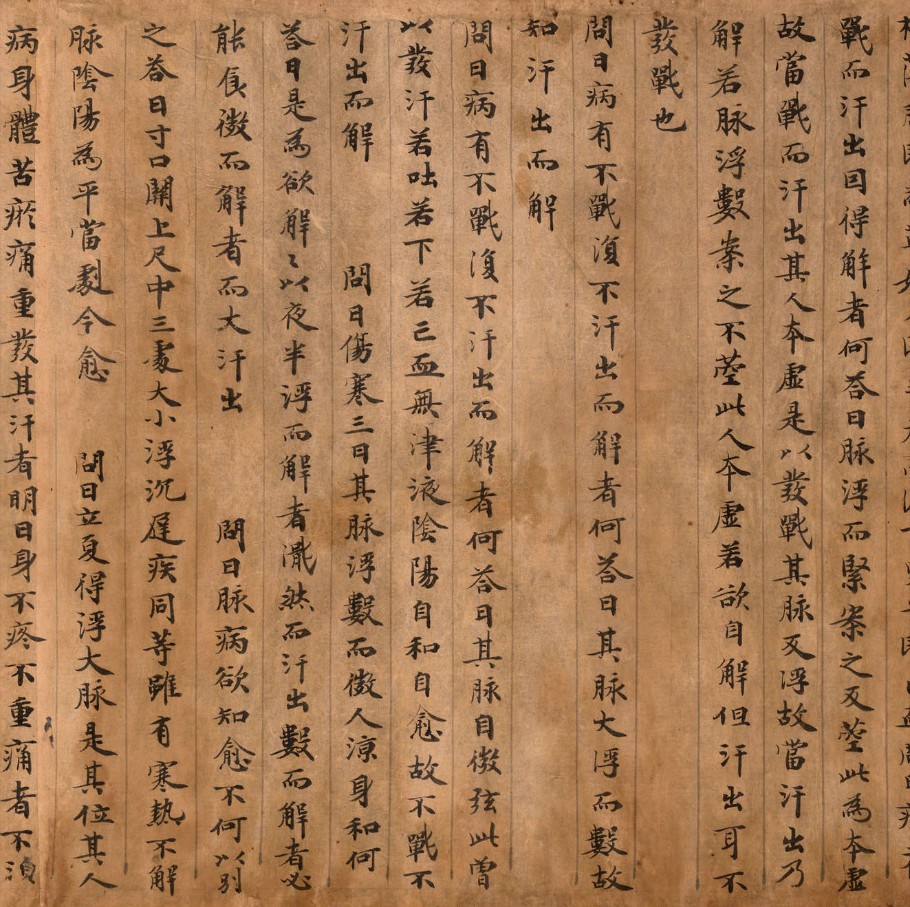 戰而汗出因得解者何荅曰脉浮而緊案之反芤此為本虛
故當戰而汗出其人本虛是以發戰其脉反浮故當汗出乃
解若脉浮數案之不芤此人本虛若欲自解但汗出耳不
發戰也
問曰病有不戰復不汗出而解者何荅曰其脉大浮而數故
知汗出而解
問曰病有不戰復不汗出而解者何荅曰其脉自微弦此曾
以發汗若吐若下若亡血無津液陰陽自和自愈故不戰不
汗出而解 問曰傷寒三日其脉浮數而微人涼身和何
荅曰是為欲解々以夜半浮而解者濈然而汗出數而解者必
能食微而解者而大汗出 問曰脉病欲知愈不何以別
之荅曰寸口關上尺中三處大小浮沉遲疾同等雖有寒熱不解
脉陰陽為平當劇今愈 問曰立夏得浮大脉是其位其人
病身體苦瘀痛重發其汗者明日身不疼不重痛者不復